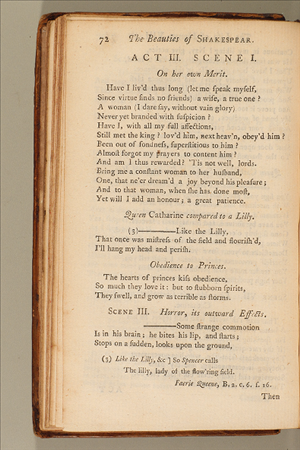 72 The Beauties of SHAKESPEAR.
ACT III. SCENE I.
On her own Merit.
Have I liv'd thus long (let me speak myself,
Since virtue finds no friends) a wife, a true one?
A woman (I dare say, without vain glory)
Never yet branded with suspicion?
Have I, with all my full affections,
Still met the king? lov'd him, next heav'n, obey'd him?
Been out of fondness, superstitious to him?
Almost forgot my prayers to content him?
And am I thus rewarded? 'Tis not well, lords.
Bring me a constant woman to her husband,
One, that ne'er dream'd a joy beyond his pleasure;
And to that woman, when she has done most,
Yet will I add an honour; a great patience.
Queen Catharine compared to a Lilly.
(3)————Like the Lilly,
That once was mistress of the field and flourish'd,
I'll hang my head and perish.
Obedience to Princes.
The hearts of princes kiss obedience,
So much they love it: but to stubborn spirits,
They swell, and grow as terrible as storms.
SCENE III. Horror, its outward Effects.
————Some strange commotion
Is in his brain; he bites his lip, and starts;
Stops on a sudden, looks upon the ground,
(3) Like the Lilly, &c ] So Spencer calls
The lilly, lady of the flow'ring field.
Faerie Queene, B. 2. c. 6. s. 16.
Then